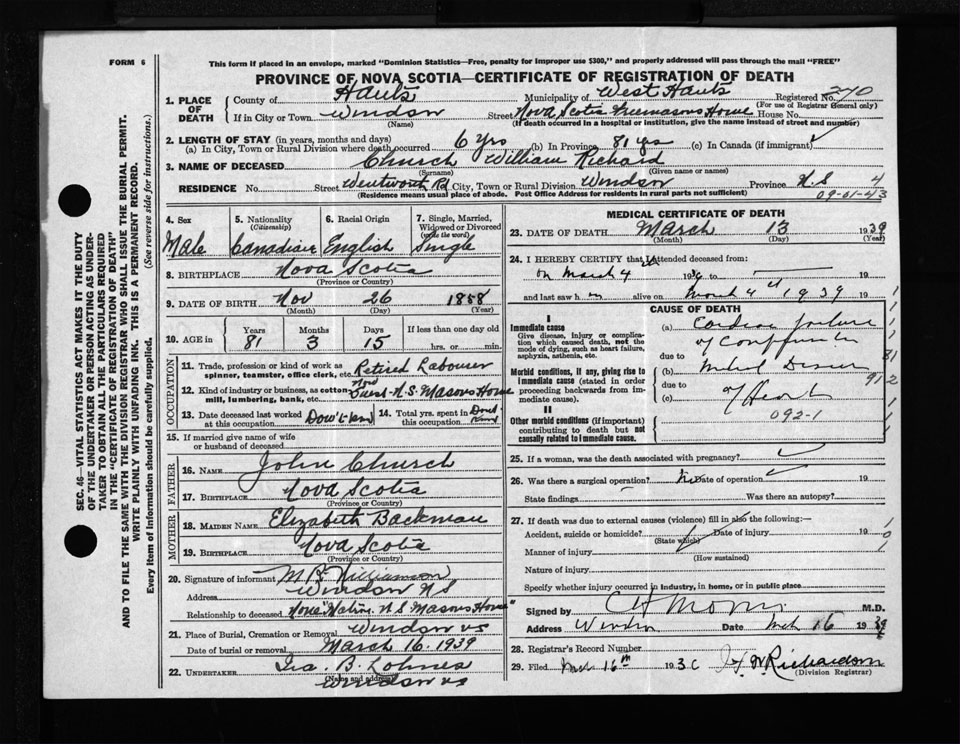 FORM 6
This form if placed in an envelope, marked "Dominion Statistics—Free, penalty for improper use $300," and properly addressed will pass through the mail "FREE"
PROVINCE OF NOVA SCOTIA—CERTIFICATE OF REGISTRATION OF DEATH
1. PLACE OF DEATH
County of Hants Municipality of West Hants Registered No. 270
(For use of Registrar General only)
If in City or Town Windsor Street Nova Scotia Freemasons Home House No.
(Name) (If death occurred in a hospital or institution, give the name instead of street and number)
2. LENGTH OF STAY (in years, months and days)
(a) In City, Town or Rural Division where death occurred 6 yrs (b) In Province 81 yrs (c) In Canada (if immigrant)
3. NAME OF DECEASED Church William Richard
(Surname) (Given name or names)
RESIDENCE No. Street Wentworth Rd City, Town or Rural Division Windsor Province N.S 4
(Residence means usual place of abode. Post Office Address for residents in rural parts not sufficient)
09-61-43
SEC. 46—VITAL STATISTICS ACT MAKES IT THE DUTY
OF THE UNDERTAKER OR PERSON ACTING AS UNDER-
TAKER TO OBTAIN ALL THE PARTICULARS REQUIRED
IN THE "CERTIFICATE OF REGISTRATION OF DEATH"
AND TO FILE THE SAME WITH THE DIVISION REGISTRAR WHO SHALL ISSUE THE BURIAL PERMIT.
WRITE PLAINLY WITH UNFADING INK. THIS IS A PERMANENT RECORD.
Every item of Information should be carefully supplied. (See reverse side for instructions.)
4. Sex 5. Nationality (Citizenship) 6. Racial Origin 7. Single, Married, Widowed or Divorced (write the word)
Male Canadian English Single
8. BIRTHPLACE Nova Scotia
(Province or Country)
9. DATE OF BIRTH Nov 26 1858
(Month) (Day) (Year)
10. AGE in Years Months Days If less than one day old
81 3 15 hrs. or min.
OCCUPATION
11. Trade, profession or kind of work as spinner, teamster, office clerk, etc. Retired Labourer
12. Kind of industry or business, as cotton mill, lumbering, bank, etc. N.S. Masons Home
13. Date deceased last worked at this occupation 14. Total yrs. spent in this occupation
15. If married give name of wife or husband of deceased
FATHER
16. NAME John Church
17. BIRTHPLACE Nova Scotia
(Province or Country)
MOTHER
18. MAIDEN NAME Elizabeth Backman
19. BIRTHPLACE Nova Scotia
(Province or Country)
20. Signature of informant M B Williamson
Address Windsor N S
Relationship to deceased None N S Masons Home
21. Place of Burial, Cremation or Removal Windsor NS
Date of burial or removal March 16. 1939
22. UNDERTAKER Ira. B. Lohnes
(Name and address)
Windsor NS
MEDICAL CERTIFICATE OF DEATH
23. DATE OF DEATH March 13 1939
(Month) (Day) (Year)
24. I HEREBY CERTIFY that I attended deceased from:
on March 4th 19 to
and last saw h m alive on March 4th 1939 19
CAUSE OF DEATH
I
Immediate cause
Give disease, injury or complica-
tion which caused death, not the
mode of dying, such as heart failure,
asphyxia, asthenia, etc.
(a) Cardiac failure
due to
Morbid conditions, if any, giving rise to
immediate cause (stated in order
proceeding backwards from im-
mediate cause).
(b)
due to
(c) of Heart
092-1
II
Other morbid conditions (if important)
contributing to death but not
causally related to immediate cause.
1
1
1
81
912
1
1
1
25. If a woman, was the death associated with pregnancy?
26. Was there a surgical operation No Date of operation 19
State findings Was there an autopsy?
27. If death was due to external causes (violence) fill in also the following:—
Accident, suicide or homicide? Date of injury 19
(State which)
Manner of injury
(How sustained)
Nature of injury
Specify whether injury occurred in industry, in home, or in public place
1
0
1
Signed by M.D.
Address Windsor Date Mch 16 1939
28. Registrar's Record Number
29. Filed Mch 16th 193 Richardson
(Division Registrar)